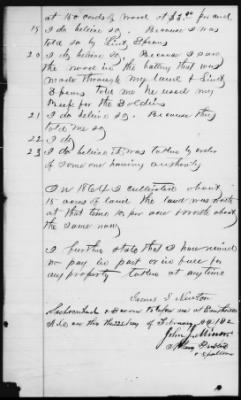 at 150 cords of wood at $2.00 per cord
19 I do believe so. Because I was
told so by Lieut Spears
20 I do believe so. Because I saw
the wood in the battery that was
made through my land & Lieut
Spears told me he used my
Beef for the Soldiers
21 I do believe so. Because they
told me so
22 I do
23 I do believe it was taken by order
of some one having authority
In 1864 I cultivated about
15 acres of land the land was worth
at that time per acre worth about
the same now
I further state that I have received
no pay in part or in full for
any property taken at anytime
James S. Newton
Subscribed & sworn to before me at
this day of February
John Minor